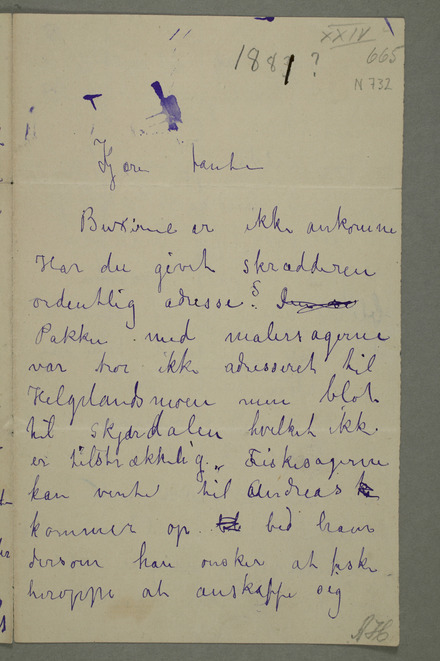 XXIV
1881?
665
N 732
Kjære tante
Buxerne er ikke ankomne
Har du givet skrædderen
ordentlig adresse?
Pakken med malersagerne
var tror ikke adresseret til
Helgelandsmoen men blot
til Skjærdalen hvilket ikke
er tilstrækkelig. Fiskesagerne
kan vente til Andreas
kommer op bed ham
dersom han ønsker at fiske
heroppe at anskaffe sig